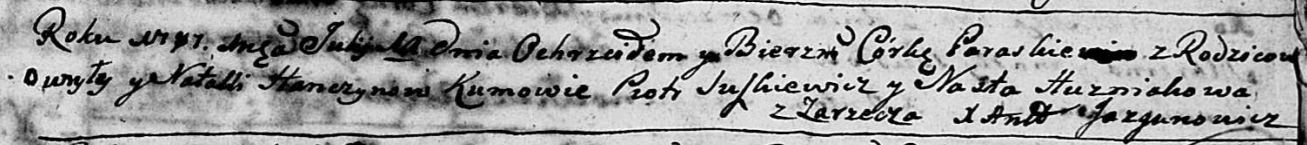 Roku 1787. Mca Julij 11 dnia Ochrzciłem y Bierzm Córkę Paraskie z Rodzicow
y Natalli Hanczynow Kumowie Piotr Suszkiewicz y Nasta Huzniakowa
z Zarzecza X Ant Jazgunowicz